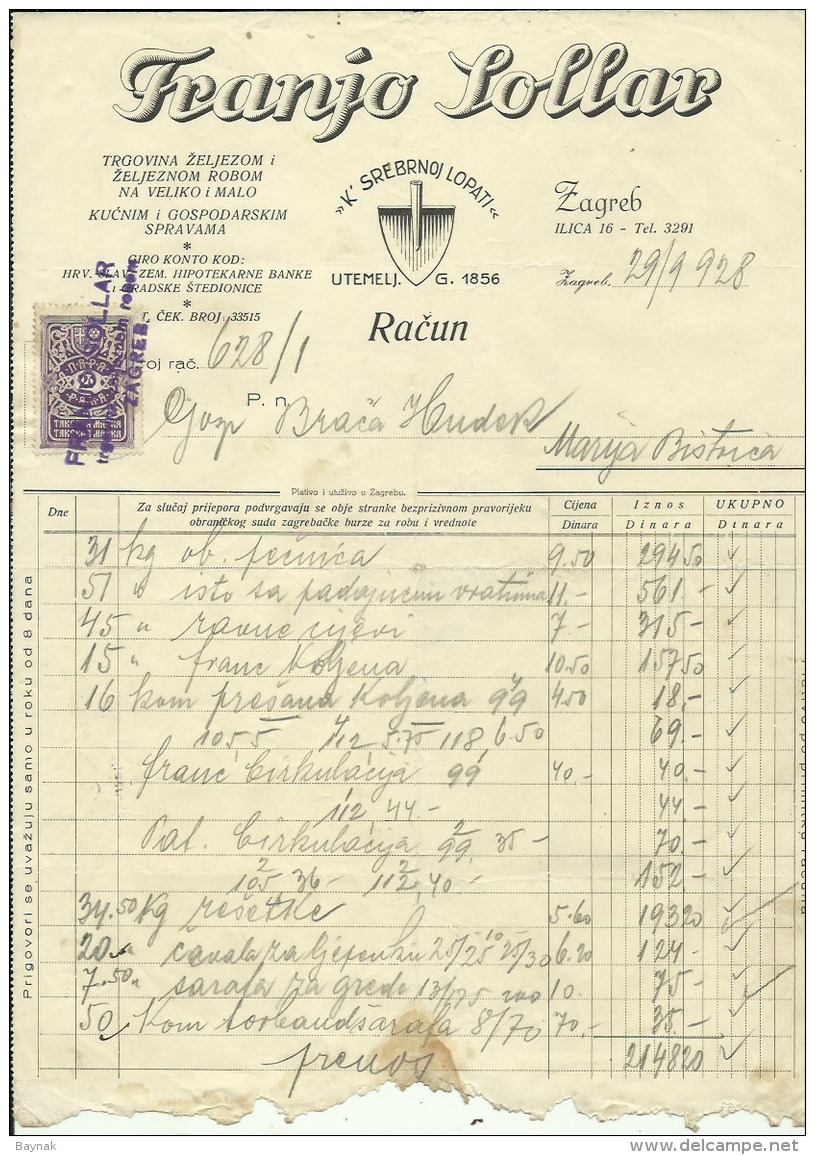 Franjo Sollar
TRGOVINA ŽELJEZOM i
ŽELJEZNOM ROBOM
NA VELIKO i MALO
KUĆNIM i GOSPODARSKIM
SPRAVAMA
*
GIRO KONTO KOD:
HRV. SLAV. ZEM. HIPOTEKARNE BANKE
i GRADSKE ŠTEDIONICE
*
ČEK. BROJ: 33515
»K' SREBRNOJ LOPATI«
UTEMELJ. G. 1856
Zagreb
ILICA 16 - Tel. 3291
Zagreb, 29/9 928
Račun
oj rač. 628/1
ПАРА
20
PARA
ТАКСЕНА МАРКА
TAKSENA MARKA
ZAGREB
P. n.
Gosp Braća Hudek
Marija Bistrica
Plativo i utuživo u Zagrebu.
Dne
Za slučaj prijepora podvrgavaju se obje stranke bezprizivnom pravorijeku
obraničkog suda zagrebačke burze za robu i vrednote
Cijena
Dinara
Iznos
Dinara
UKUPNO
Dinara
31 kg ob. pećnica 9.50 294 50
51 " isto sa padajućim vratima 11.- 561.-
45 " ravne cijevi 7- 315-
15 " franc koljena 10.50 157 50
16 kom prešana koljena 99 4 4.50 18.-
105 5- 4/112 5.75 118 6.50 69.-
franc Cirkulacija 99 40.- 40.-
112 44.- 44.-
Pat. Cirkulacija 2/99 35- 70.-
2/105 36- 2/112 40- 152.-
34.50 kg rešetke 5.60 193 20
20 " čavala za 25/25 25/30 6.20 124.-
7.50 " šarafa za grede 13/175 10. 75-
50 Kom 8/70 70.- 35.-
prenos 2148 20
Prigovori se uvažuju samo u roku od 8 dana
Baynak
www.delcampe.net